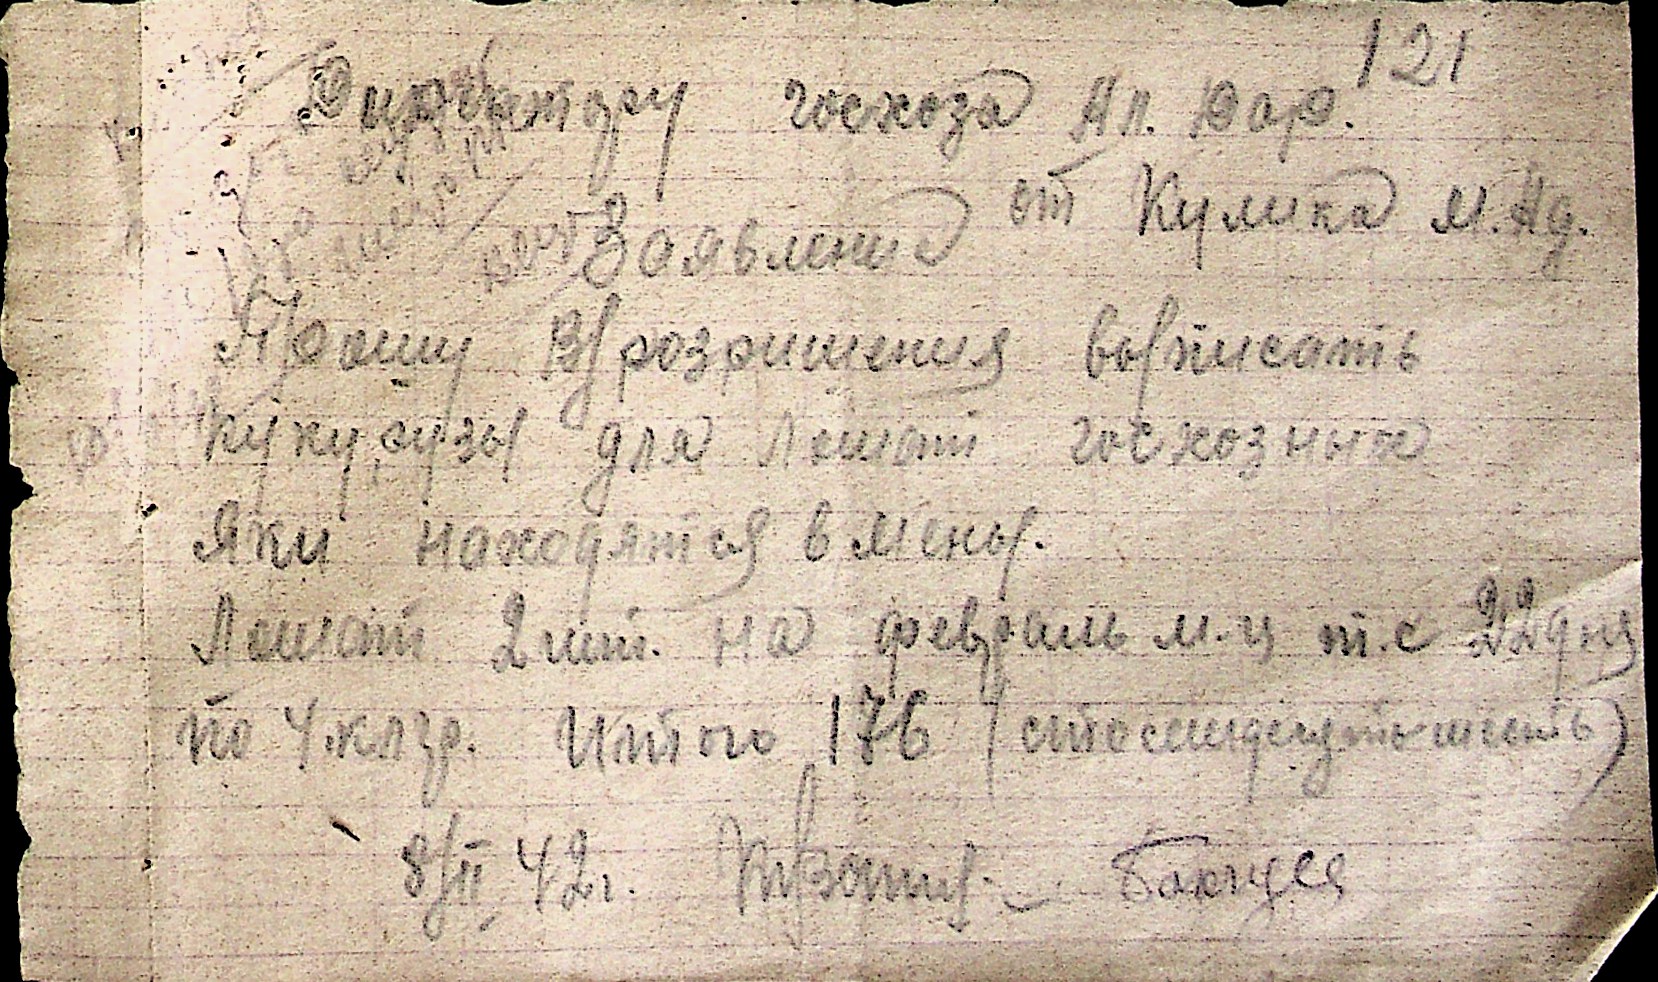 121
Директору госхоза Ап. Дар.
от Кулика М. Ад.
Заявление
Прошу В/розришения выписать
кукурузы для Лошат госхозных
яки находятся в мены.
Лошат 2 шт. на февраль м-ц т.е 22 дня
по 4 клгр. Итого 176 (стосемдесятьшесть)
8/II 42 г.